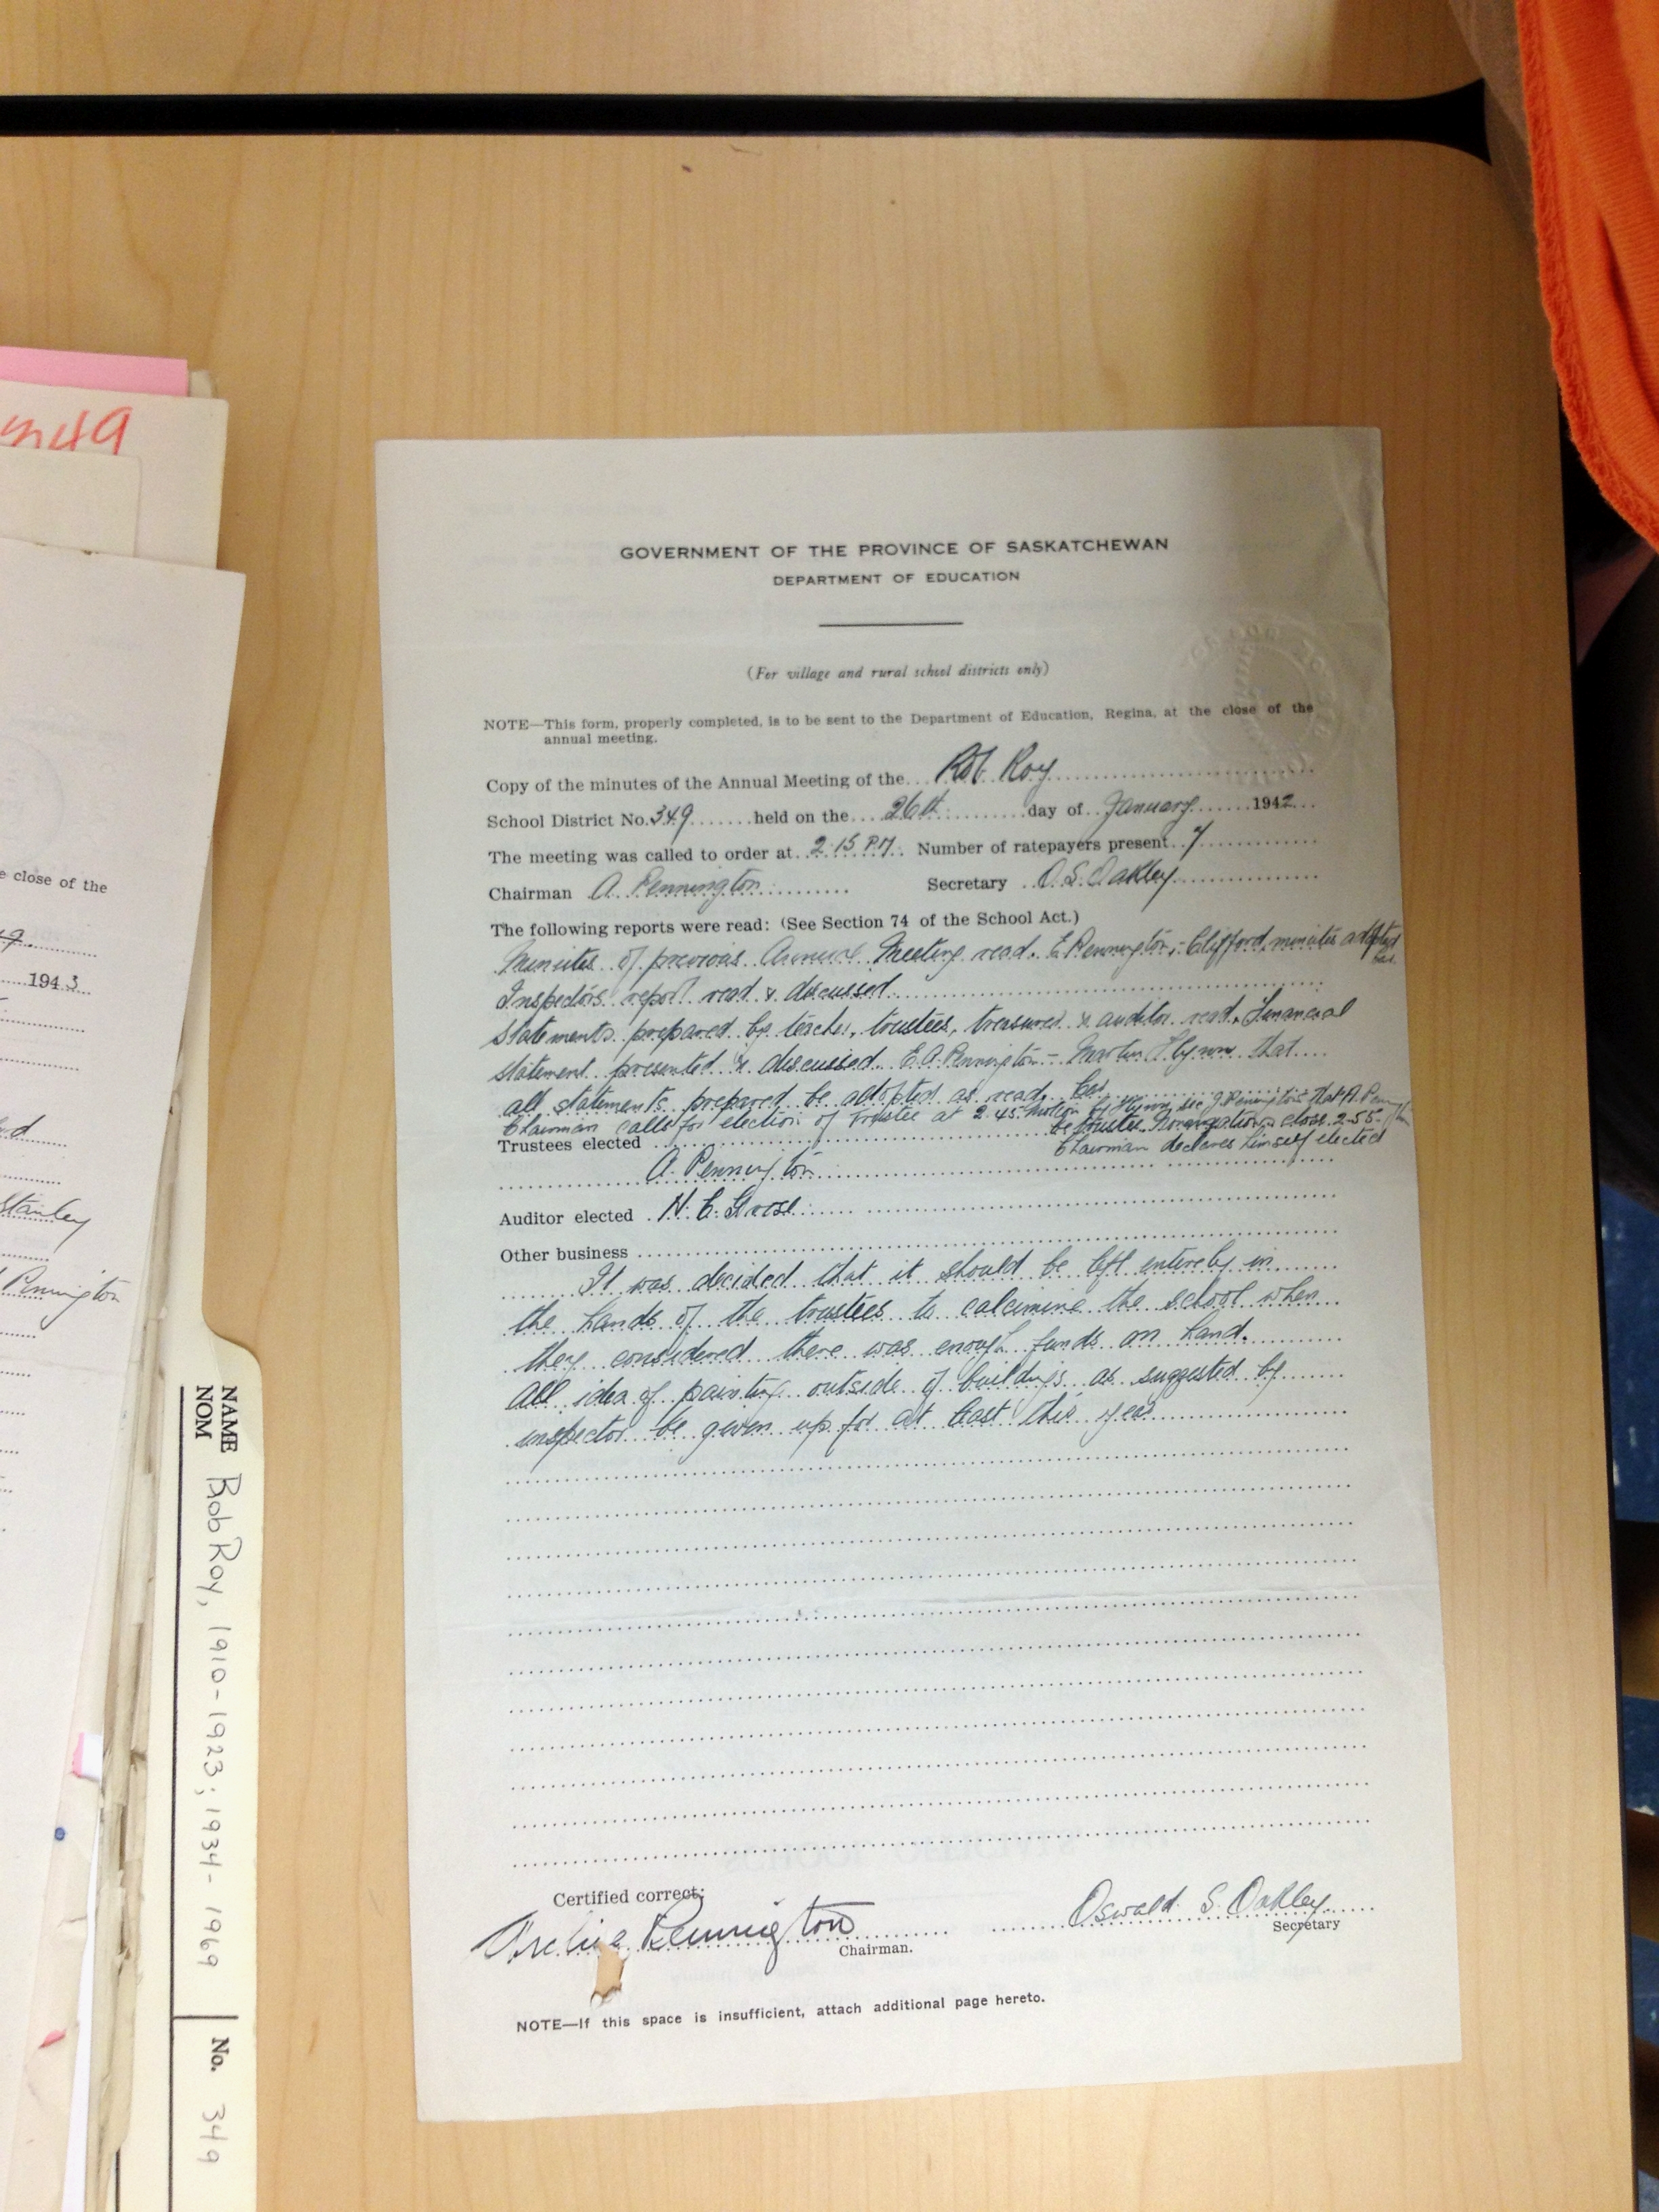 GOVERNMENT OF THE PROVINCE OF SASKATCHEWAN
DEPARTMENT OF EDUCATION
(For village and rural school districts only)
NOTE—This form, properly completed, is to be sent to the Department of Education, Regina, at the close of the
annual meeting.
Copy of the minutes of the Annual Meeting of the Rob Roy
School District No. 349 held on the 26th day of January 1942
The meeting was called to order at 2.15 P.M. Number of ratepayers present 7
Chairman A. Pennington Secretary O.S. Oakley
The following reports were read: (See Section 74 of the School Act.)
Minutes of previous Annual Meeting read. E Pennington, - Clifford, minutes adopted
Inspectors report read & discussed
Statements prepared by teacher, trustees, treasurer & auditor read. Financial
statement presented & discussed. E.A. Pennington - Martin Flynn that
all statements prepared be adopted as read.
Chairman calls for election of Trustee at 2.45. Motion by Flynn sec J. Pennington that A. Pennington
be trustee. Nominations close 2.55.
Chairman declares himself elected
Trustees elected
A. Pennington
Auditor elected N. C.
Other business
It was decided that it should be left entirely in
the hands of the trustees to calcimine the school when
they considered there was enough funds on hand.
All idea of painting outside of buildings as suggested by
inspector be given up for at least this year
Certified correct:
Archie Pennington
Chairman.
Oswald S. Oakley
Secretary
NOTE—If this space is insufficient, attach additional page hereto.
349
e close of the
1943
Stanley
Pennington
NAME
NOM
Bob Roy, 1910-1923; 1934-1969
No. 349